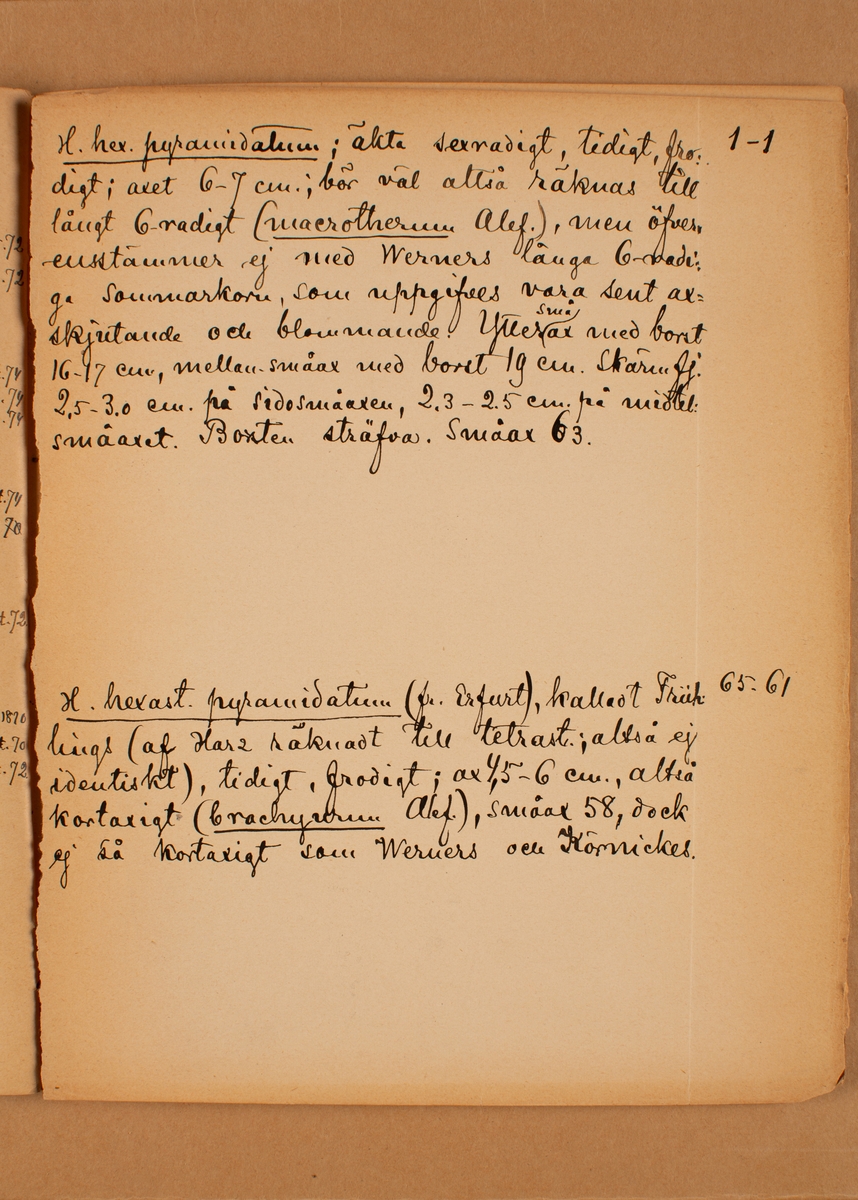 H. hex. pyramidatum; äkta sexradigt, tidigt, fro- 1-1
digt; axet 6-7 cm.; bör väl alltså räknas till
långt 6-radigt (macrotherum Alef.), men öfver-
ensstämmer ej med Werners långa 6-radi-
ga sommarkorn, som uppgifves vara sent ax-
skjutande och blommande. Ytter småax med borst
16-17 cm, mellan-småax med borst 19 cm. Skärmfj.
2,5-3.0 cm. på sidosmåaxen, 2.3-2.5 cm. på midtel-
småaxet. Borsten sträfva. Småax 63.
H. hexast. pyramidatum (fr. Erfurt), kalladt Früh- 65-61
lings (af Harz räknadt till tetrast.; altså ej
identiskt), tidigt, frodigt; ax 4,5-6 cm., altså
kortaxigt (brachyurum Alef.), småax 58, dock
ej så kortaxigt som Werners och Körnickes.
72
72
74
74
74
74
70
t.72
1870
t.70
t.72